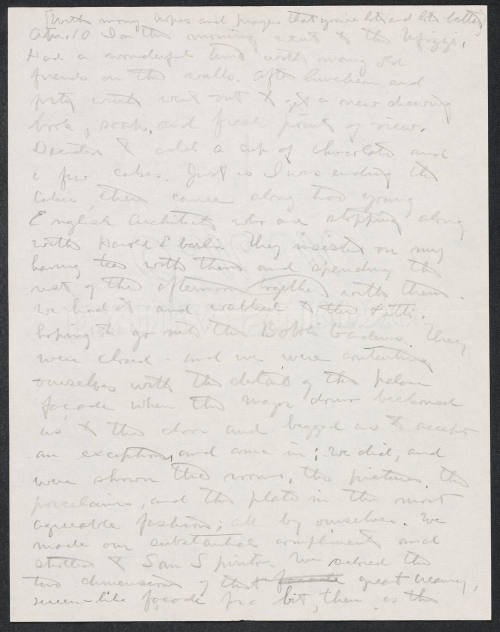 With many hopes and prayers that you're better and better
April 10 In the morning went to the Uffizi,
had a wonderful time with many old
friends on the walls. After luncheon and
went out to get a new drawing
book, soap, and fresh point of view.
Decided to add a cup of chocolate and
a few cakes. Just as I was ending the
cakes, there came along two young
English Architects who are stopping along
with Harold Eberlein. They insisted on my
having tea with them and spending the
rest of the afternoon together with them.
We had it and walked to the Pitti,
hoping to go into the Boboli Gardens. They
were closed - and we were contenting
ourselves with the detail of the palace
facade when the major domo beckoned
us to the door and begged us to accept
an exception, and come in; we did, and
were shown the rooms, the pictures, the
porcelains, and the plate in the most
agreeable fashion; all by ourselves. We
made our substantial compliments and
strolled to San Spirito. We the
two dimensions of that facade great creamy,
screen-like façade for a bit, then as the